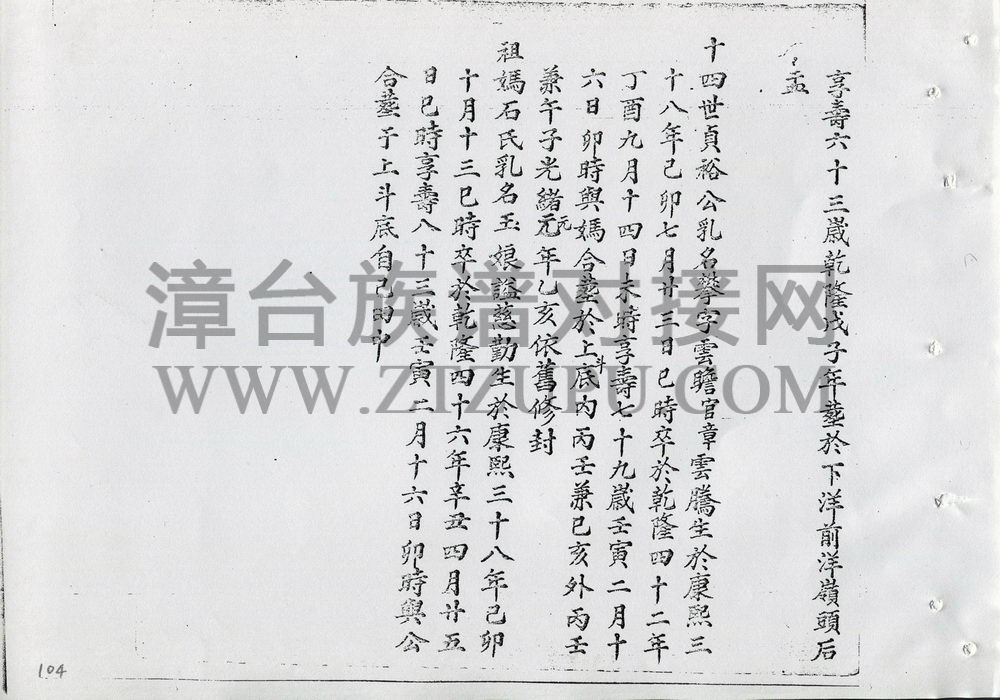 享壽六十三歲乾隆戊子年塟於下洋前洋嶺頭后
孟
十四世貞裕公乳名攀字雲瞻官章雲騰生於康熙三
十八年己卯七月廿三日巳時卒於乾隆四十二年
丁酉九月十四日未時享壽七十九歲壬寅二月十
六日卯時與媽合塟於上斗底內丙壬兼巳亥外丙壬
兼午子光緒元元年乙亥依舊修封
祖媽石氏乳名玉娘謚慈勤生於康熙三十八年己卯
十月十三巳時卒於乾隆四十六年辛丑四月廿五
日巳時享壽八十三歲壬寅二月十六日卯時與公
合塟于上斗底自己田中
漳台族谱对接网
WWW.ZTZUPU.COM
104